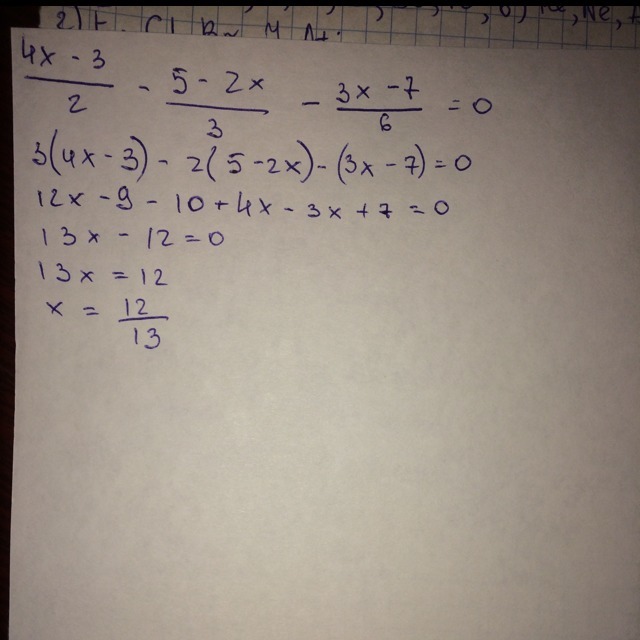 2)
Ne,
4x - 3 / 2 - 5 - 2x / 3 - 3x - 7 / 6 = 0
3(4x - 3) - 2(5 - 2x) - (3x - 7) = 0
12x - 9 - 10 + 4x - 3x + 7 = 0
13x - 12 = 0
13x = 12
x = 12 / 13